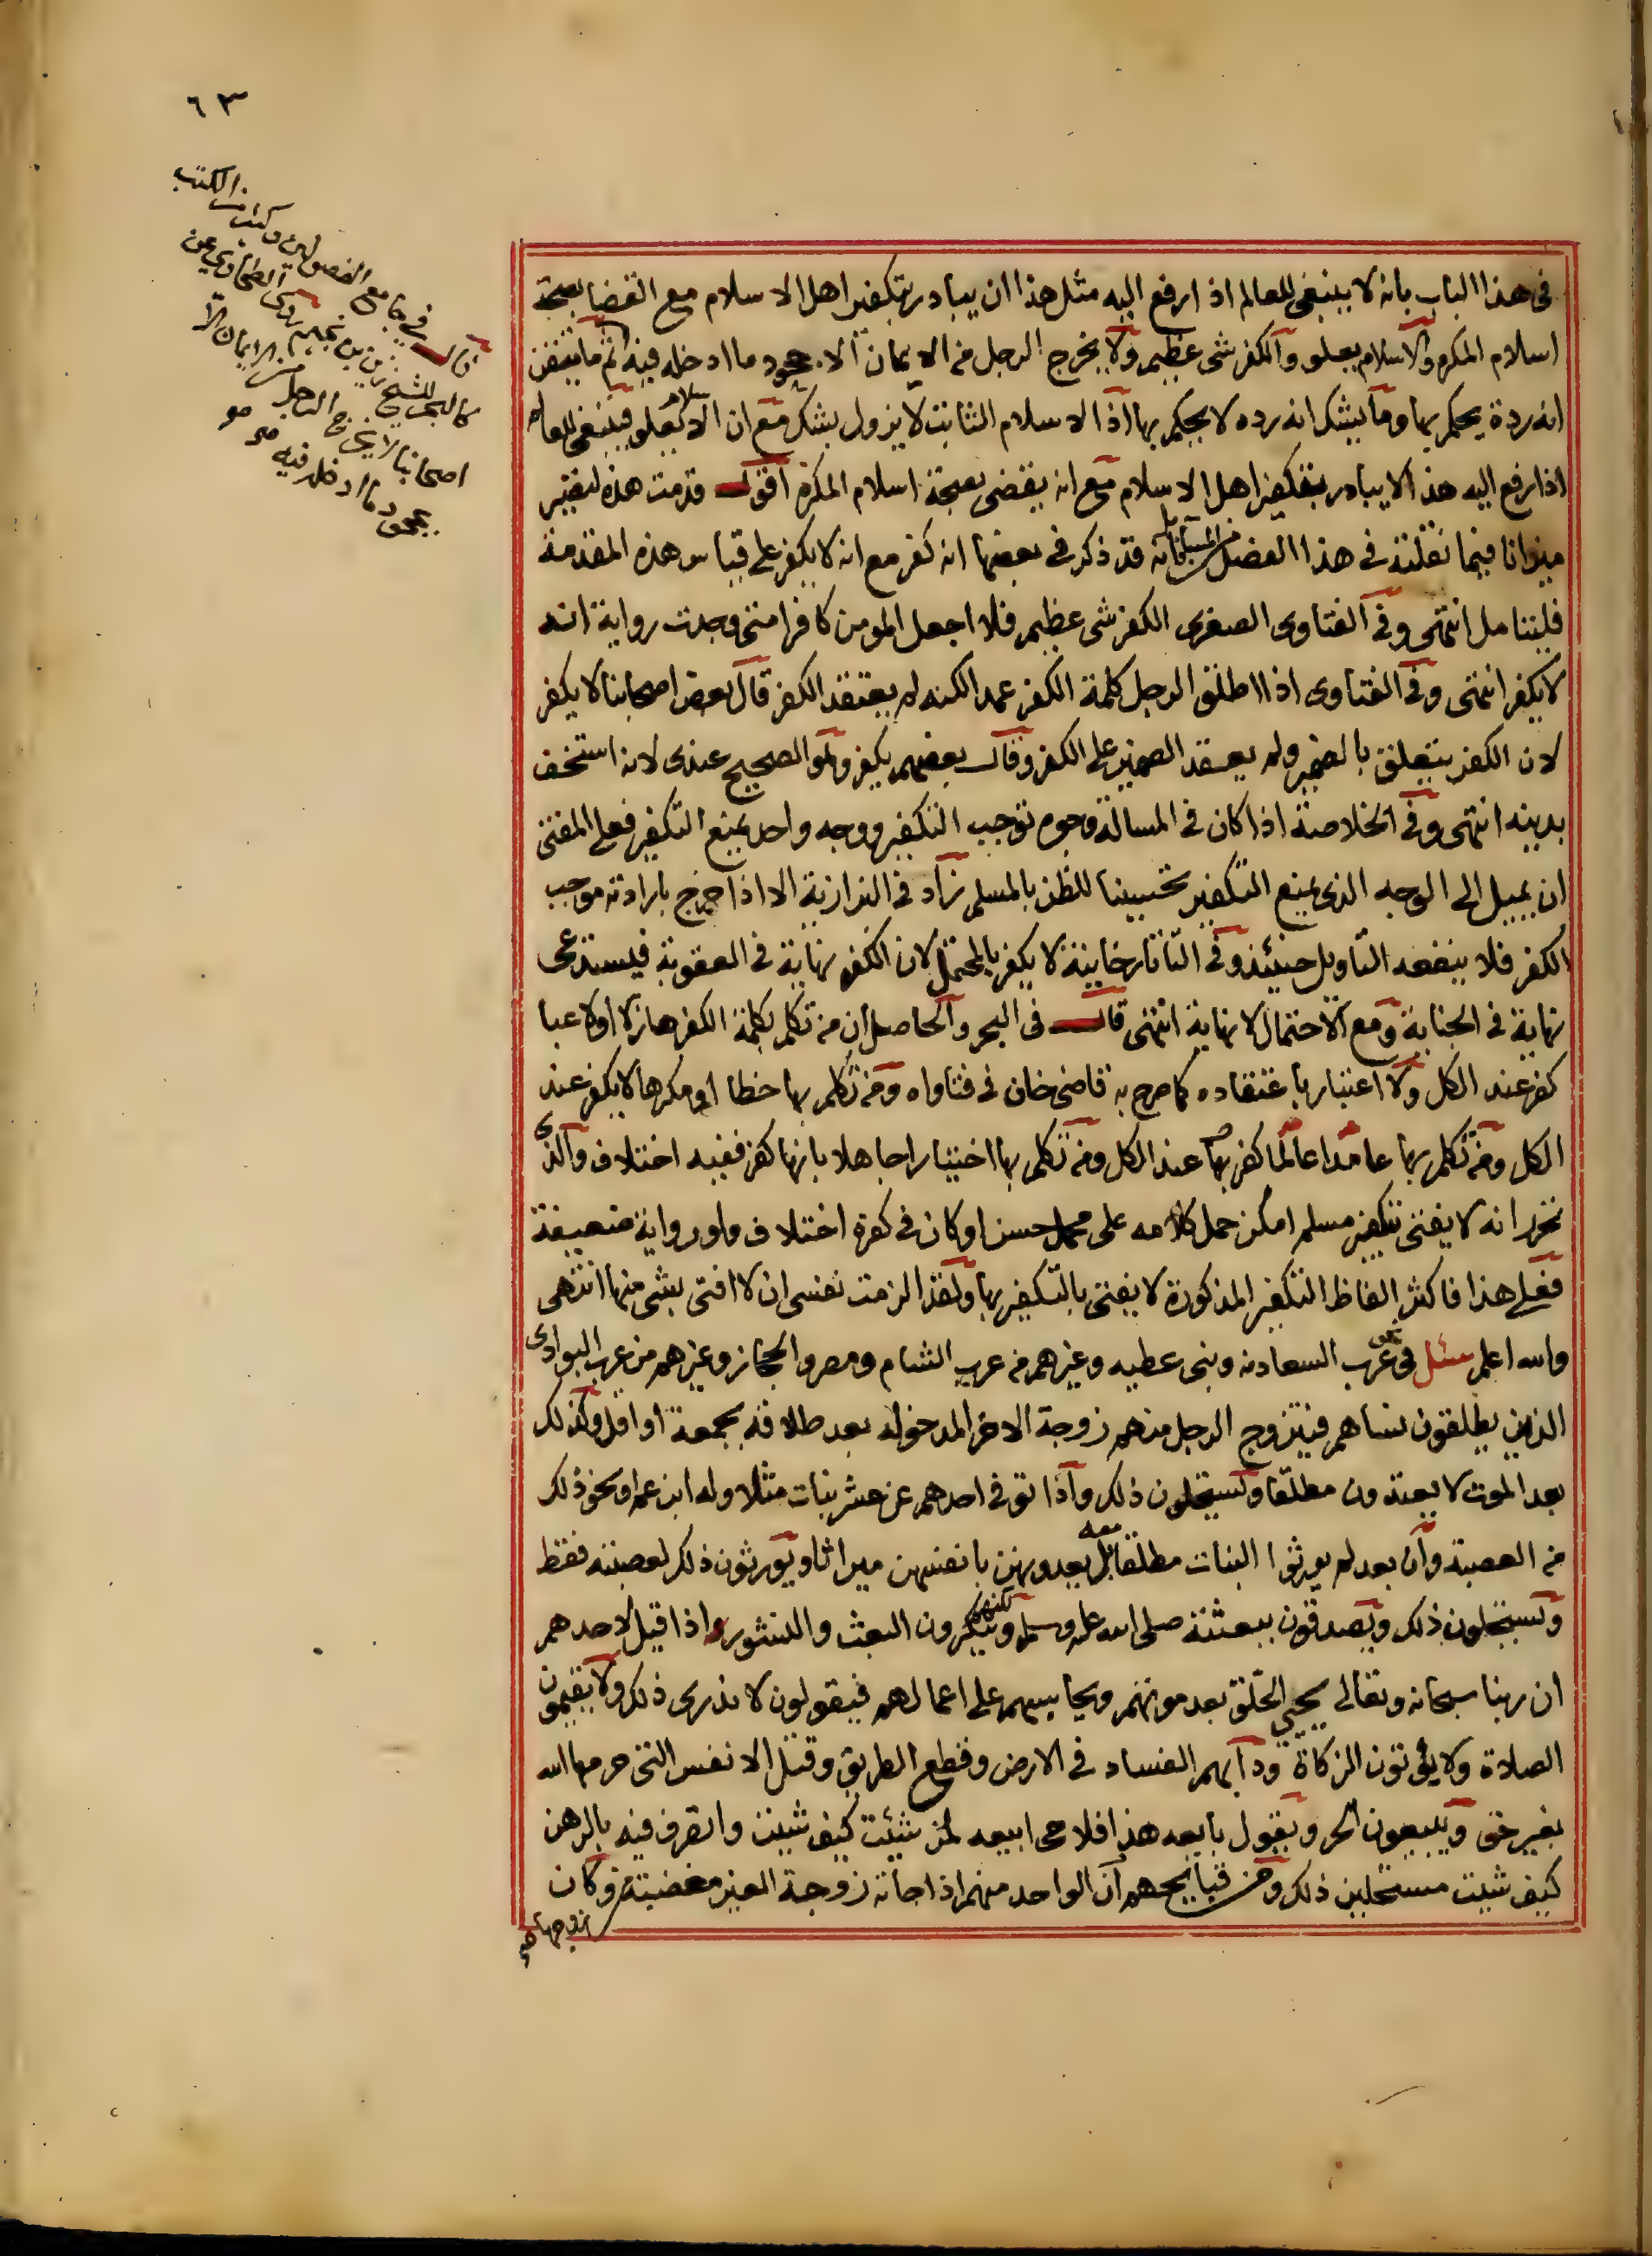 ٦٣
قال في جامع الفصولين وكثير من الكتب
كالبحر للشيخ زين بن نجيم روى الطحاوي عن
اصحابنا لا يخرج الرجل من الايمان الا
جحود ما ادخله فيه صح صح
في هذا الباب بانه لا ينبغي للعالم اذا رفع اليه مثل هذا ان يبادر بتكفير اهل الاسلام مع القضا بصحة
اسلام المكره والاسلام يعلو والكفر شي عظيم ولا يخرج الرجل من الايمان الا جحود ما ادخله فيه ثم ما يتيقن
انه ردة يحكم بها وما يشك انه رده لا يحكم بها اذ الاسلام الثابت لا يزول بشك مع ان الاسلام يعلو فينبغي للعالم
اذا رفع اليه هذا لا يبادر بتكفير اهل الاسلام مع انه يقضي بصحة اسلام المكره اقول قدمت هذه لتصير
ميزانا فيما نقلته في هذا الفصل من المسائل فانه قد ذكر في بعضها انه كفر مع انه لا يكفر على قياس هذه المقدمة
فليتامل انتهى وفي الفتاوى الصغرى الكفر شي عظيم فلا اجعل المومن كافرا متى وجدت رواية انه
لا يكفر انتهى وفي الفتاوى اذا اطلق الرجل كلمة الكفر عمدا لكنه لم يعتقد الكفر قال بعض اصحابنا لا يكفر
لان الكفر يتعلق بالضمير ولم يعقد الضمير على الكفر وقال بعضهم يكفر وهو الصحيح عندى لانه استخف
بدينه انتهى وفي الخلاصة اذا كان في المسالة وجوه توجب التكفير ووجه واحد يمنع التكفير فعلى المفتي
ان يميل الى الوجه الذى يمنع التكفير تحسينا للظن بالمسلم زاد في البزازية الا اذا صرح بارادته موجب
الكفر فلا ينفعه التاويل حينئذ وفي التاتارخانية لا يكفر بالمحتمل لان الكفر نهاية في العقوبة فيستدعى
نهاية في الجناية ومع الاحتمال لا نهاية انتهى قال في البحر والحاصل ان من تكلم بكلمة الكفر هازلا او لاعبا
كفر عند الكل ولا اعتبار باعتقاده كما صرح به قاضي خان في فتاواه ومن تكلم بها خطا او مكرها لا يكفر عند
الكل ومن تكلم بها عامدا عالما كفر بها عند الكل ومن تكلم بها اختيارا جاهلا بانها كفر ففيه اختلاف والذى
تحرر انه لا يفتى بتكفير مسلم امكن حمل كلامه على محمل حسن او كان في كفره اختلاف ولو رواية ضعيفة
فعلى هذا فاكثر الفاظ التكفير المذكورة لا يفتى بالتكفير بها ولقد الزمت نفسي ان لا افتى بشي منها انتهى
والله اعلم سئل في نحو عرب السعادنه وبنى عطيه وغيرهم من عرب الشام ومصر والحجاز وغيرهم من عرب البوادى
الذين يطلقون نساهم فيتزوج الرجل منهم زوجة الاخر المدخوله بعد طلاقه بجمعة او اقل وكذلك
بعد الموت لا يعتدون مطلقا ويستحلون ذلك واذا توفي احدهم عن عشر بنات مثلا وله ابن عم او نحو ذلك
من العصبة وان بعد لم يورثوا البنات مطلقا معه بل يعدونهن بانفسهن ميراثا ويورثون ذلك لعصبته فقط
ويستحلون ذلك ويصدقون ببعثته صلى الله عليه وسلم لكنهم ينكرون البعث والنشور واذا قيل لاحدهم
ان ربنا سبحانه وتعالى يحيي الخلق بعد موتهم ويحاسبهم على اعمالهم فيقولون لا ندرى ذلك ولا يقيمون
الصلاة ولا يؤتون الزكاة ودأبهم الفساد في الارض وقطع الطريق وقتل الانفس التي حرمها الله
بغير حق ويبيعون الحر ويقول بايعه هذا فلاحى ابيعه لمن شئت كيف شئت واتصرف فيه بالرهن
كيف شئت مستحلين ذلك ومن قبايحهم ان الواحد منهم اذا جاته زوجة الغير مغضبة وكان
زوجها